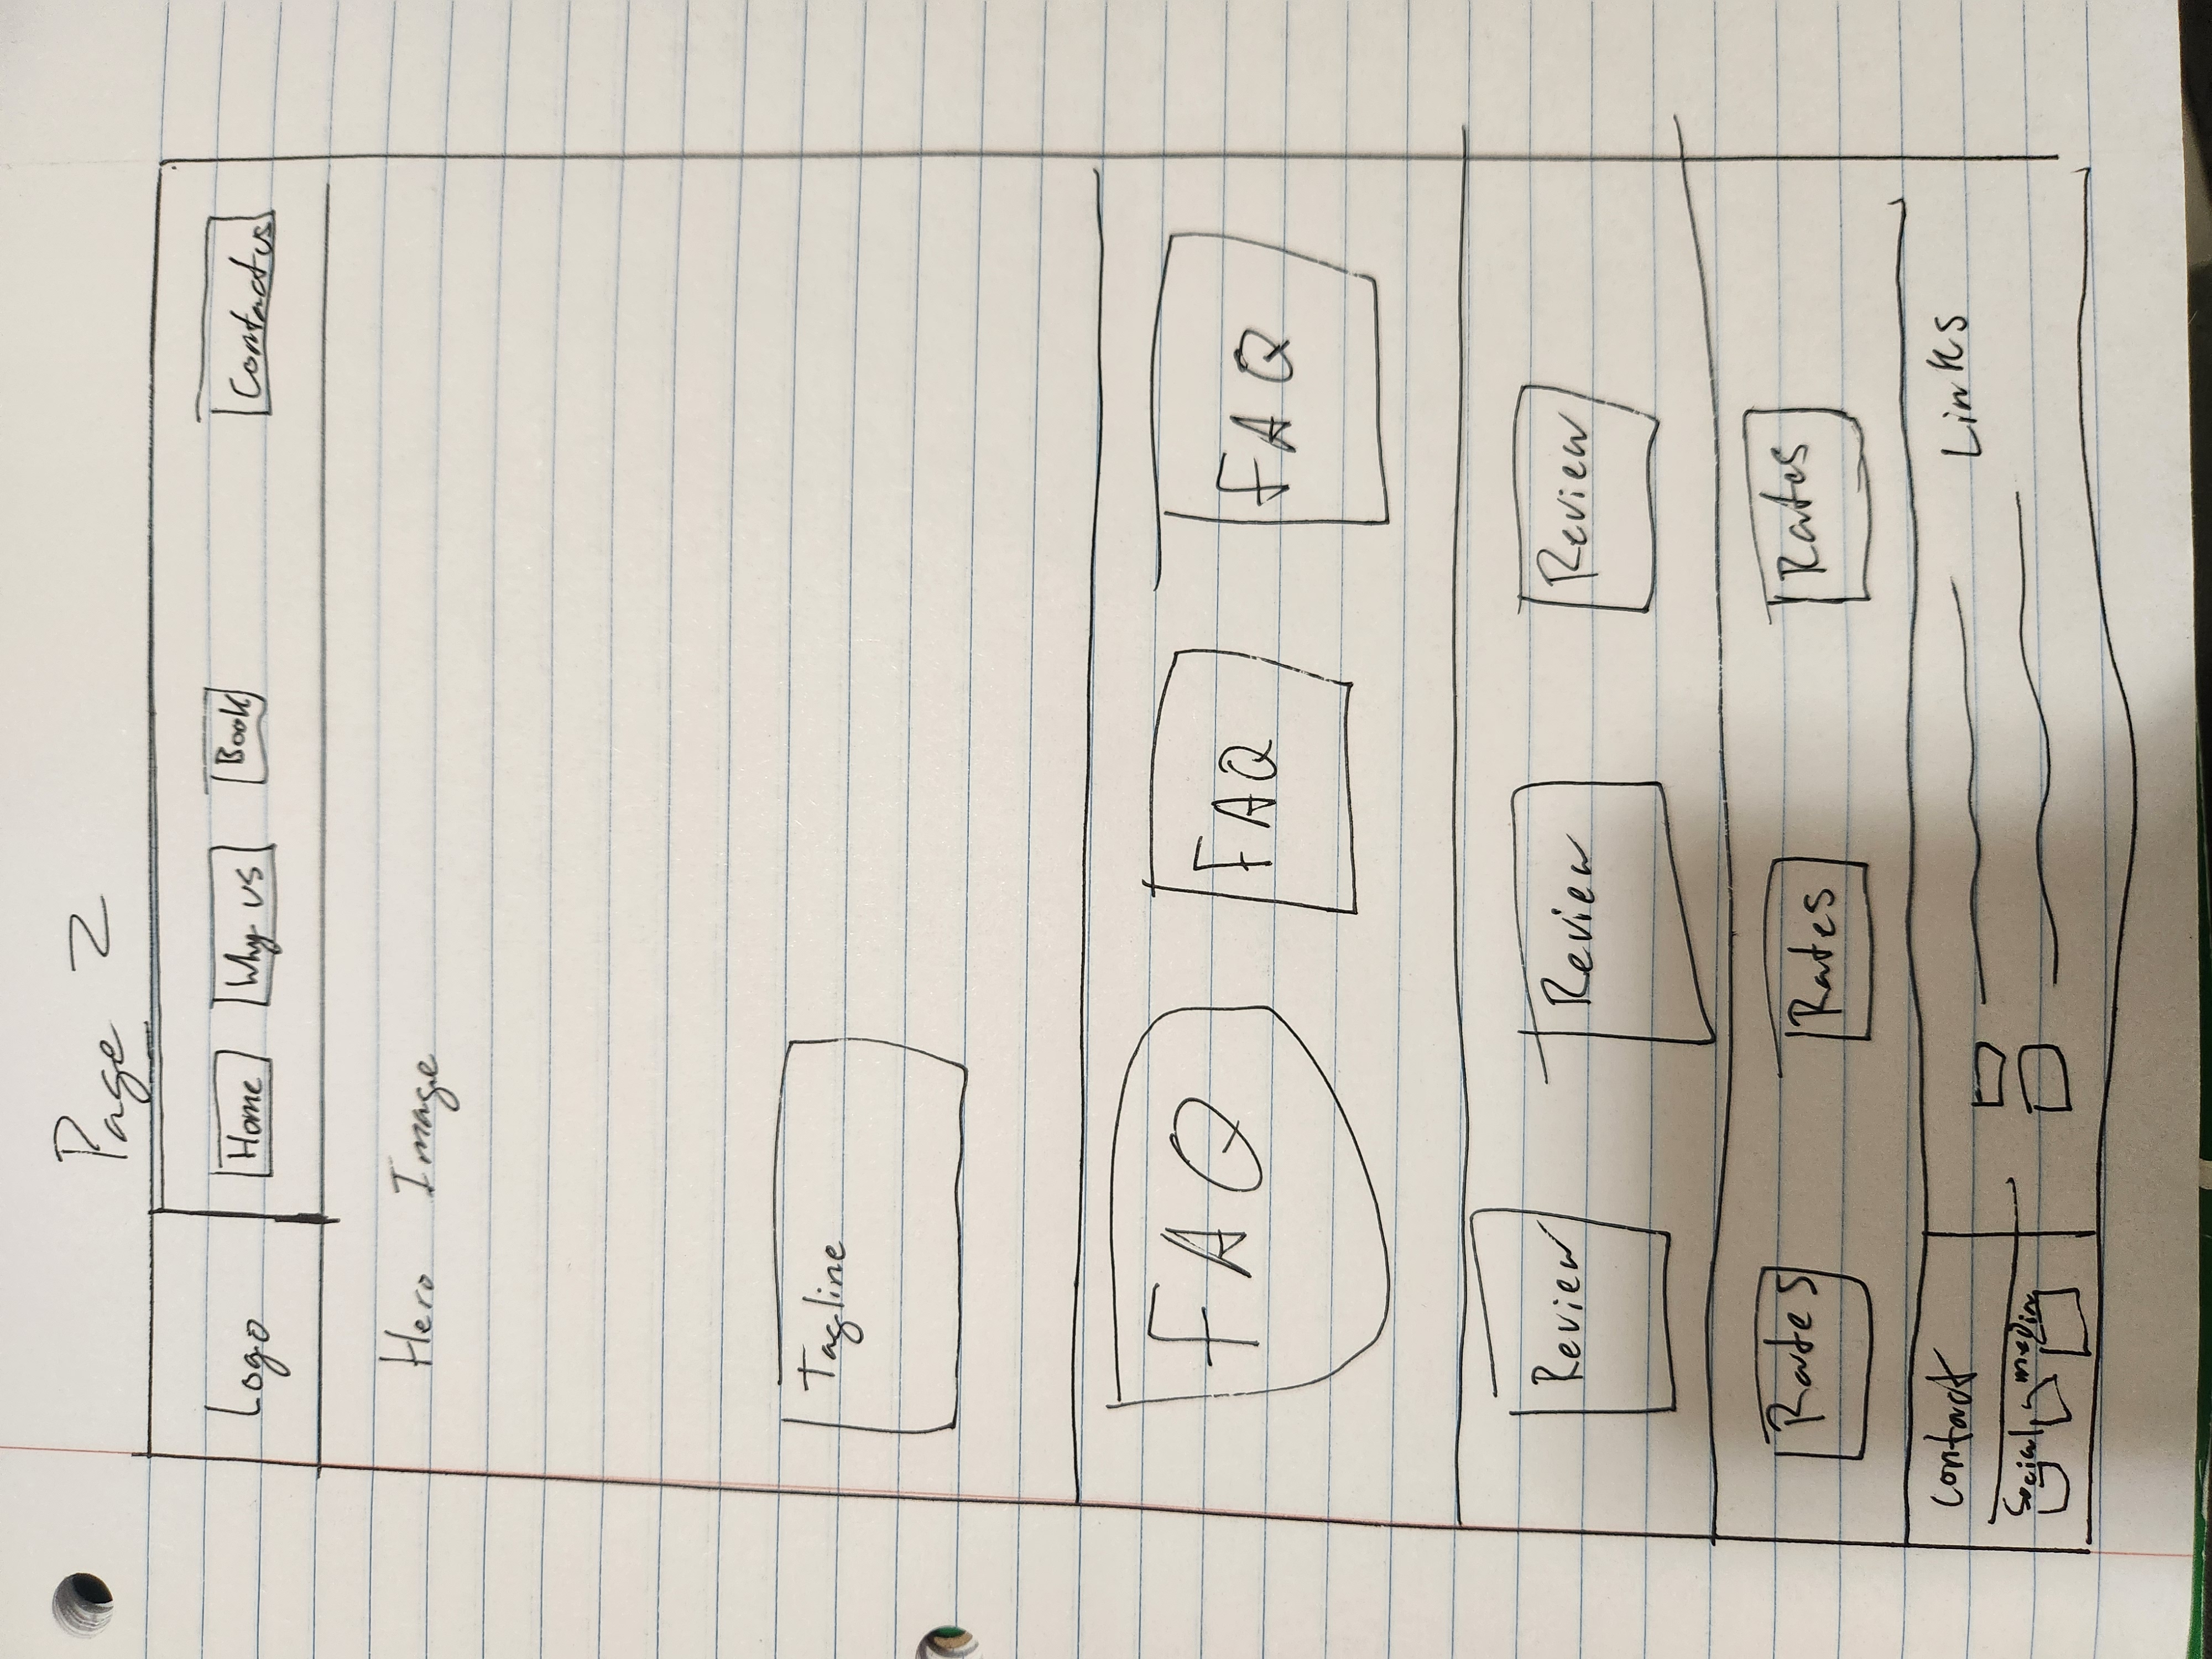 Page 2
Logo Home Why us Book Contact us
Hero Image
Tagline
FAQ FAQ FAQ
Review Review Review
Rates Rates Rates
Contact Links
Social media